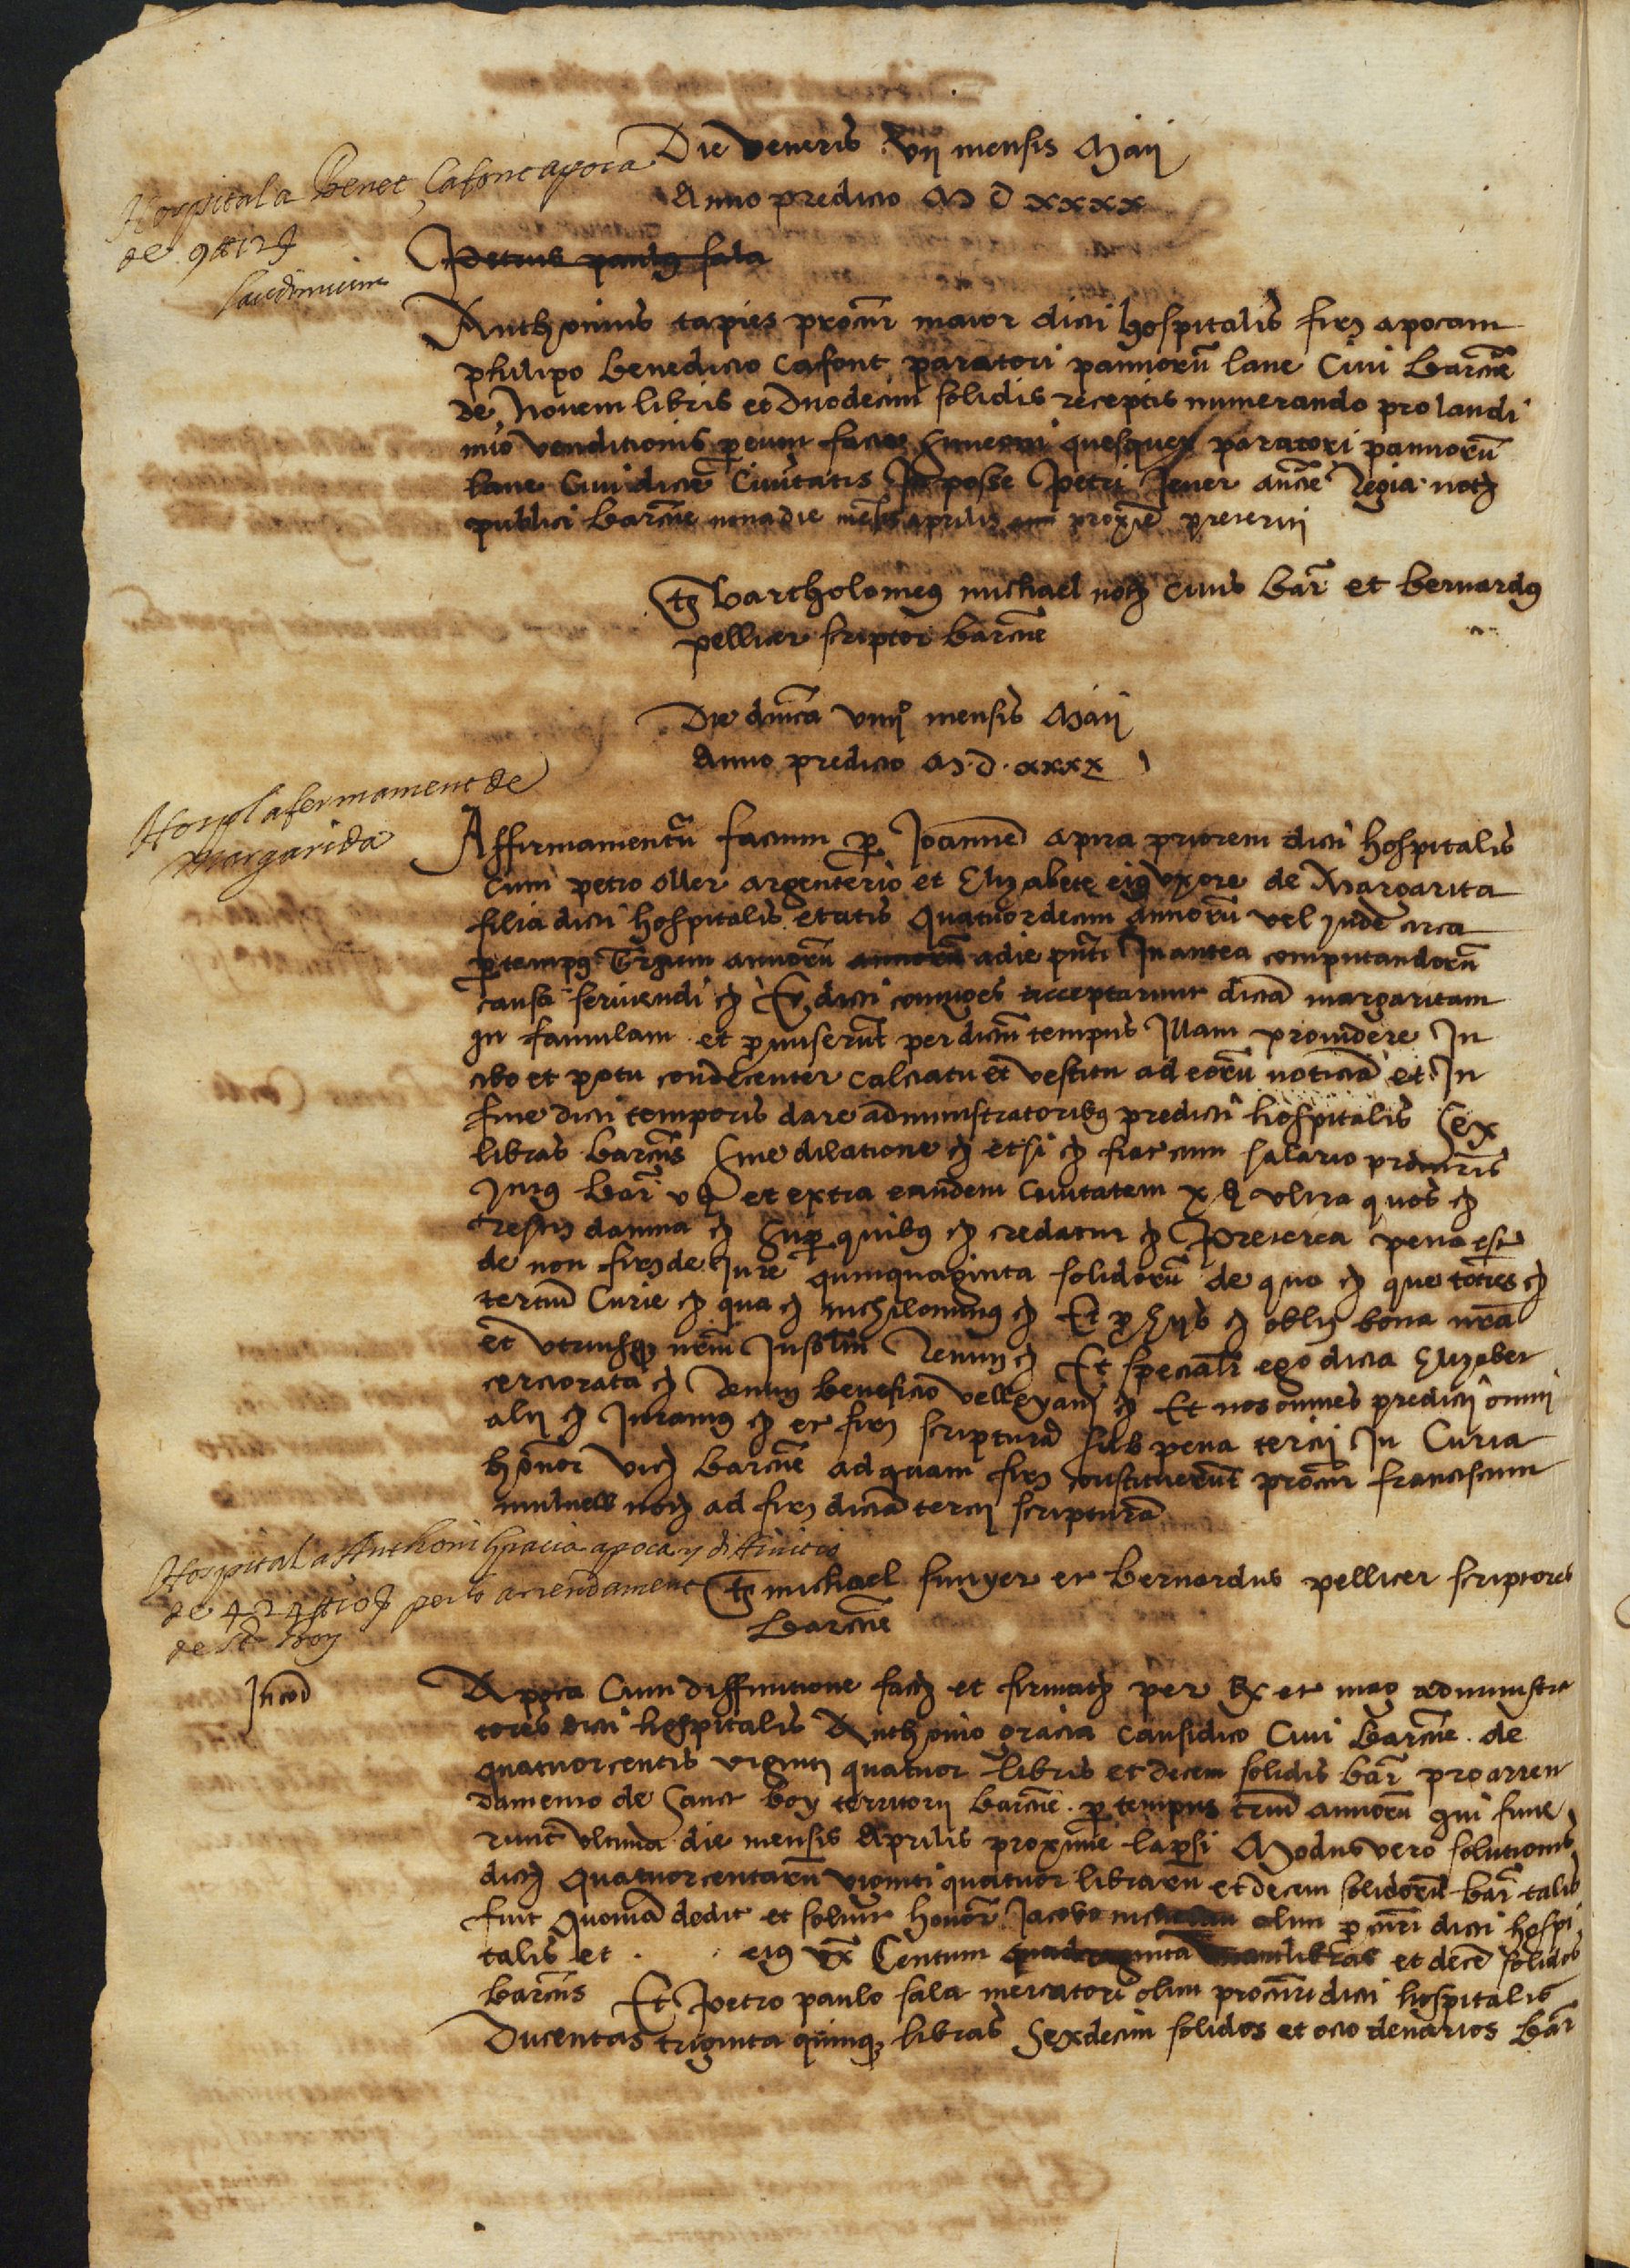 Die veneris vij mensis Maij
Anno predicto M D xxxx
Hospital a Benet Çafont apoca
de 9 ₶ 12 ẞ
Petrus paulus sala
Anthonius tapies procur maior dicti hospitalis firm apocam
philipo benedicto Cafont paratori pannorum lane Civi Barcne
de Novem libris et duodecim solidis receptis numerando pro laudi
mio venditionis per eum facte paratori pannorum
lane Civi dicte Civitatis In posse Petri Jener aucte Regia not
publici Barcne nona die mensis aprilis proxime preteriti
Ts bartholomeus michael not civis Bar et bernardus
pellicer scriptor barcne
Die dnica viiij mensis Maij
Anno predicto M.D.xxxx
Hospl afermament de
Margarida
Affirmamentum factum per Joannem apira priorem dicti hospitalis
cum petro oller argenterio et Elizabete eius uxore de Margarita
filia dicti hospitalis etatis Quatuordecim annorum vel inde circa
per tempus Trium annorum annorum a die pnti In antea computandorum
causa serviendi &c Et dicti coniuges acceptarunt dictam margaritam
in famulam et promiserunt per dictum tempus Illam providere In
cibo et potu condecenter calciatu et vestitu ad eorum noticiam et In
fine dicti temporis dare administratoribus predicti hospitalis Sex
libras barcns Sine dilatione &c et si &c fiat cum salario procuris
intus Bar v ẞ et extra eandem civitatem x ẞ ultra quos &c
restis damna &c Super quibus &c credatur &c Preterea pena
de non firm de Jure quinquaginta solidorum de quo &c que toties &c
tertium Curie &c qua &c nichilominus &c Et pro hijs &c oblig bona nra
et utriusque nrm Insolm Renun &c Et specialr ego dicta Elizabet
certiorata &c Renun beneficio velleyani &c Et nos omnes predicti omni
alij &c Juramus &c et firm scripturam sub pena tercij In Curia
honor vicarij barcne ad quam firm constituerunt procur franciscum
not ad firm dictam tercij scripturam
Hospital a Anthoni Gracia apoca y diffinicio
de 424 ₶ 10 ẞ per lo arrendament
de St Boy
Ts michael et bernardus pellicer scriptores
Barcne
Apoca Cum diffinitione facta et firmata per et mag administra
tores dicti hospitalis Anthonio gracia causidico Civi Barcne. de
quatuorcentis viginti quatuor libris et decem solidis bar pro arren
damento de Sanct boy territorij barcne. per tempus trium annorum qui finie
runt ultima die mensis Aprilis proxime lapsi Modus vero solutionis
dictarum Quatuorcentarum viginti quatuor librarum et decem solidorum bar talis
fuit Quoniam dedit et solvit honor Jacobo olim procuri dicti hospi
talis et . . eius ux Centum libras et decem solidos
barcns Et Petro paulo sala mercatori olim procuri dicti hospitalis
Ducentas triginta quinque libras Sexdecim solidos et octo denarios Bar